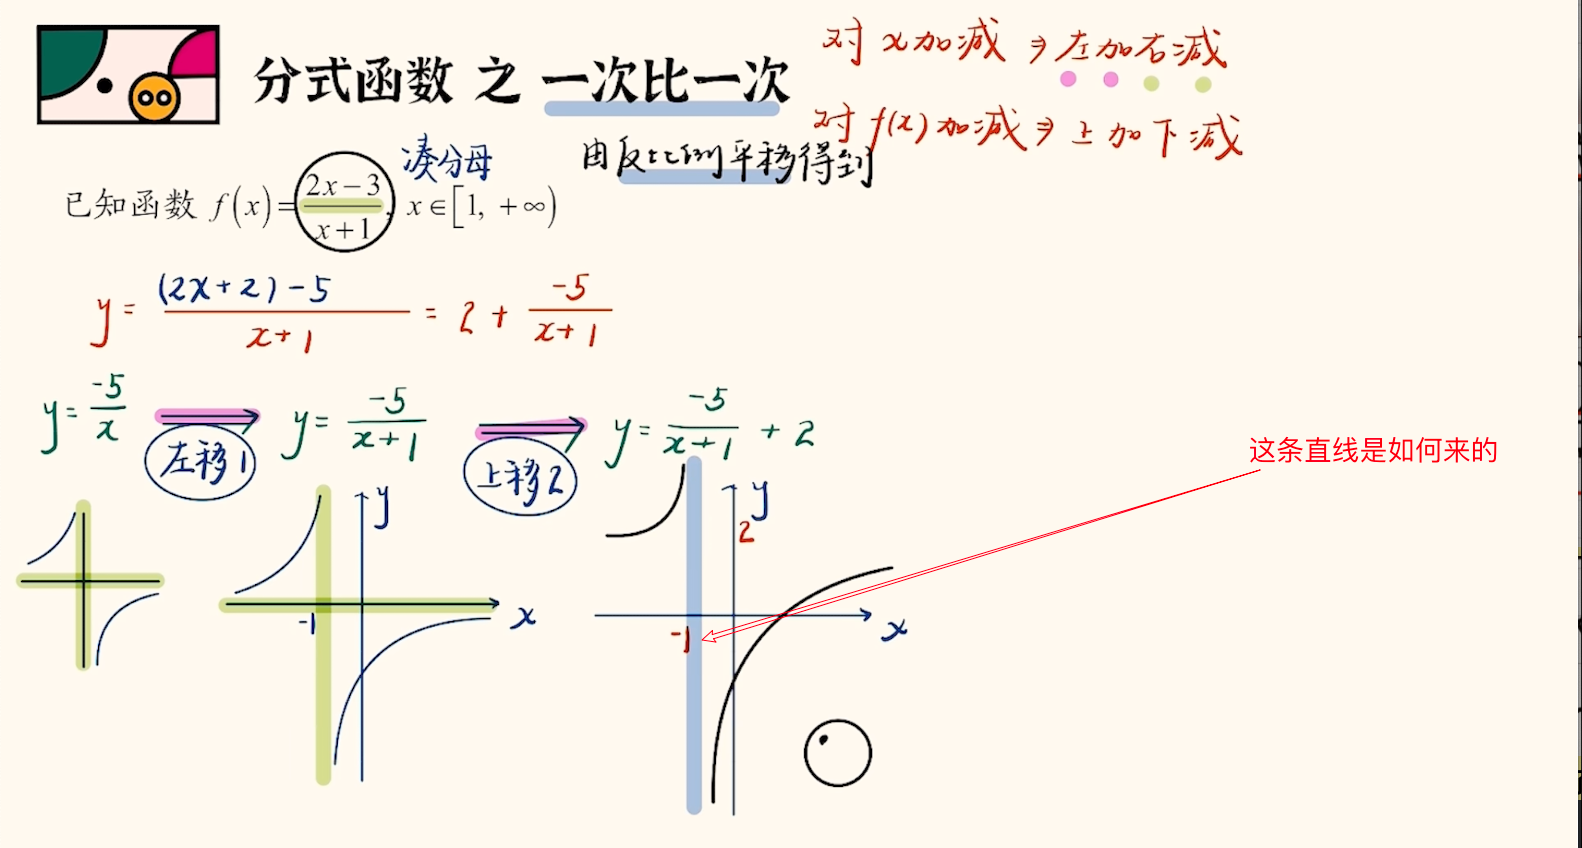 分式函数 之 一次比一次
对 x 加减 ⇒ 左加右减
对 f(x) 加减 ⇒ 上加下减
凑分母
由反比例平移得到
已知函数 f(x)=(2x-3)/(x+1), x∈[1, +∞)
y = ((2x+2)-5)/(x+1) = 2 + (-5)/(x+1)
y = (-5)/x 左移1 y = (-5)/(x+1) 上移2 y = (-5)/(x+1) + 2
这条直线是如何来的
y
y
2
-1
x
-1
x